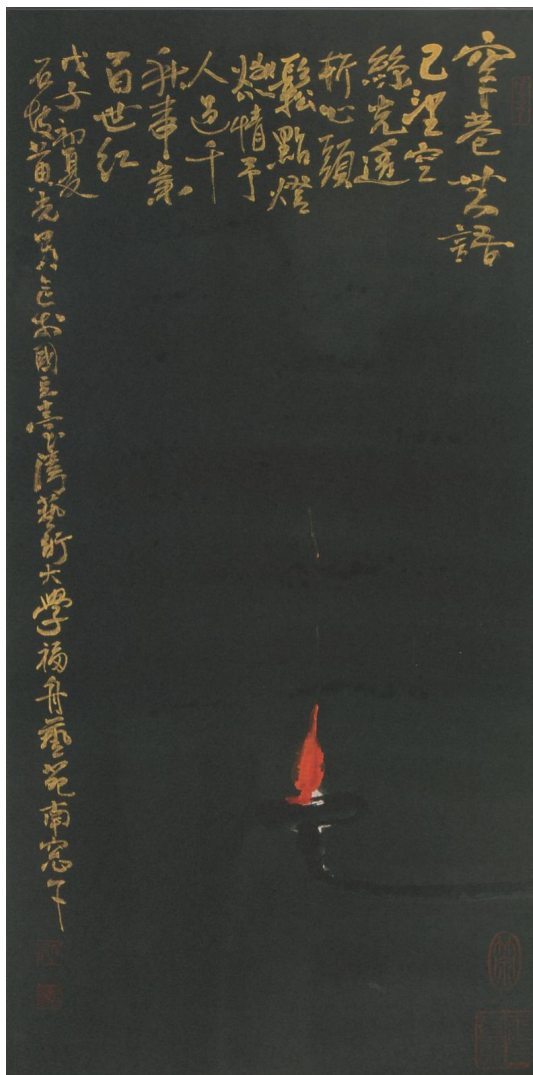 窄巷無語
已望空
絲光透
析心頭
鬆點燈
燃情予
人過千
秋事業
百世紅
戊子初夏
黃光男於國立臺灣藝術大學福舟藝苑南窗下